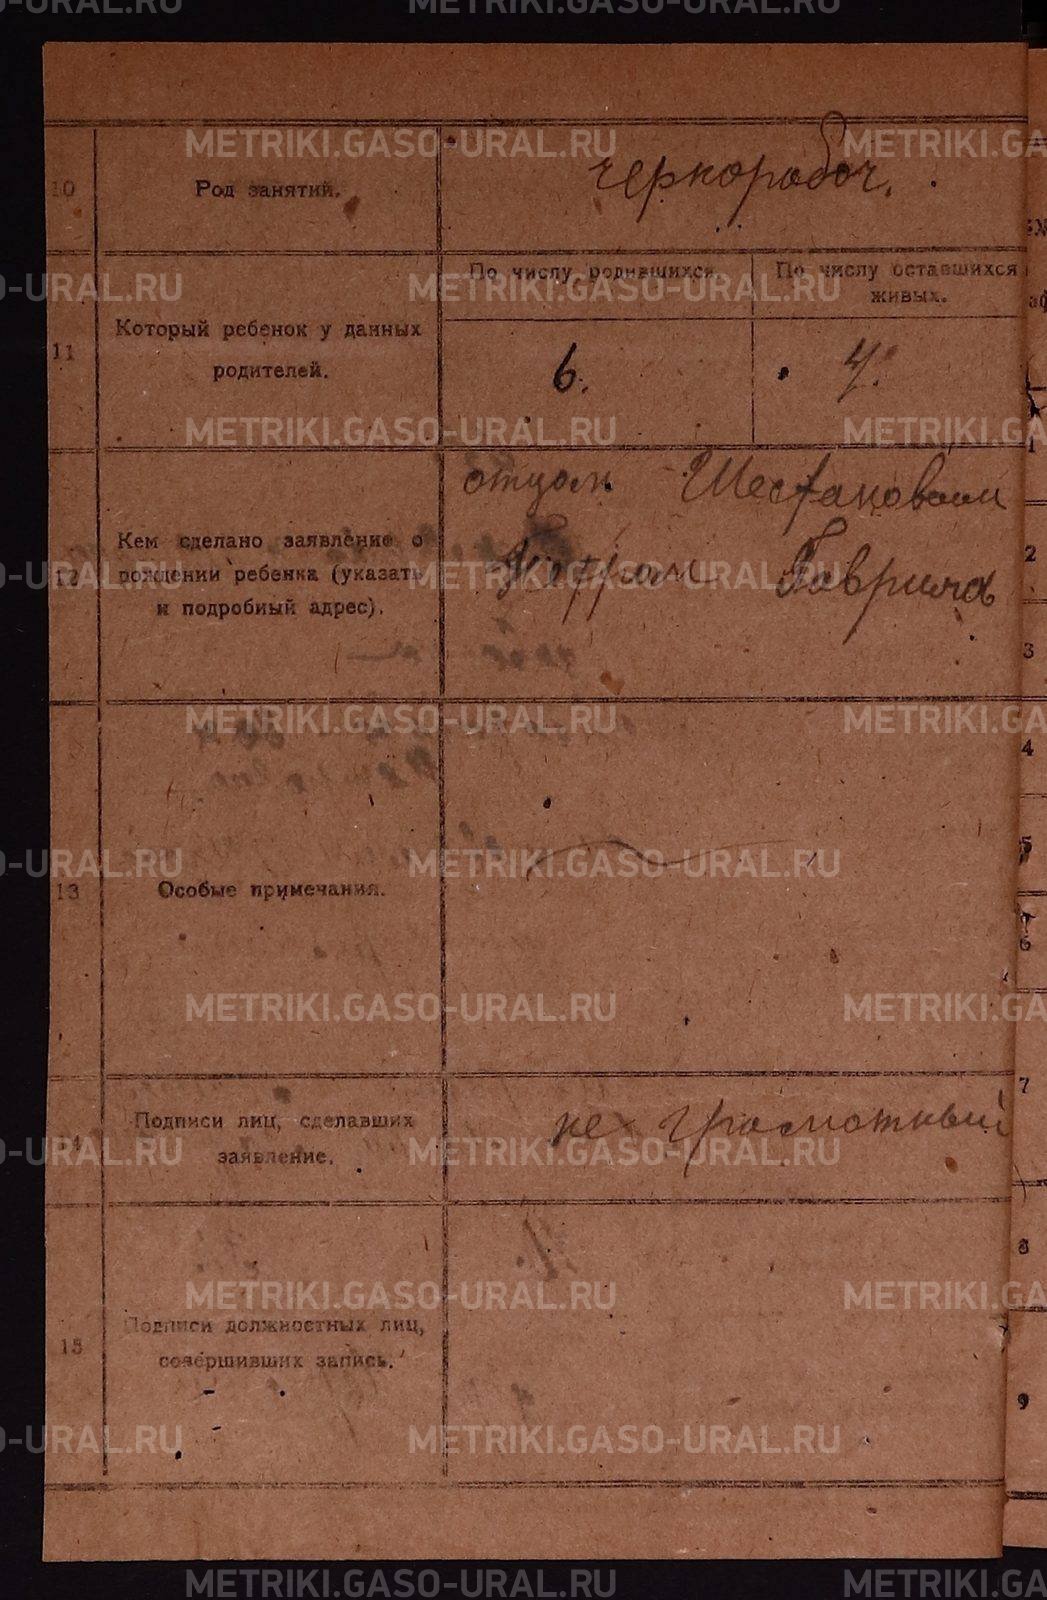 10
Род занятий.
чернорабоч.
11
Который ребенок у данных
родителей.
По числу родившихся.
По числу оставшихся
живых.
6.
4.
12
Кем сделано заявление о
рождении ребенка (указать
и подробный адрес).
отцом Шестаковым
Гаврила
13
Особые примечания.
14
Подписи лиц, сделавших
заявление.
не грамотный
15
Подписи должностных лиц,
совершивших запись.
1
2
3
4
5
6
7
8
9
METRIKI.GASO-URAL.RU